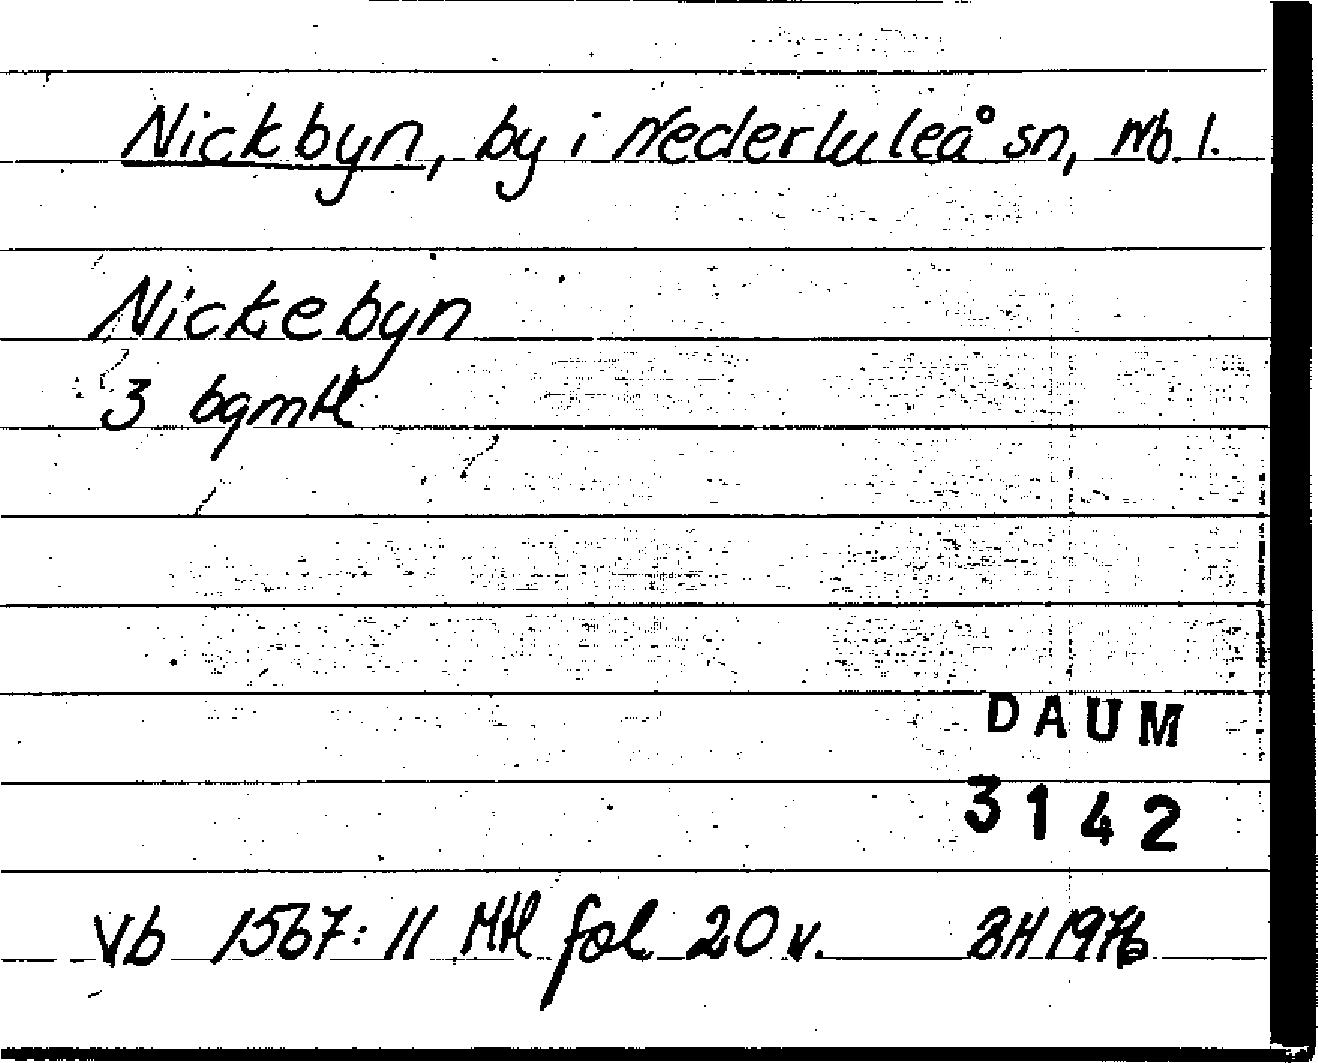 Nickbyn, by i Nederluleå sn, Nb l.
Nickebyn
3 bgmtl
DAUM
3142
Vb 1567:11 Mtl fol 20 v. BH 1976